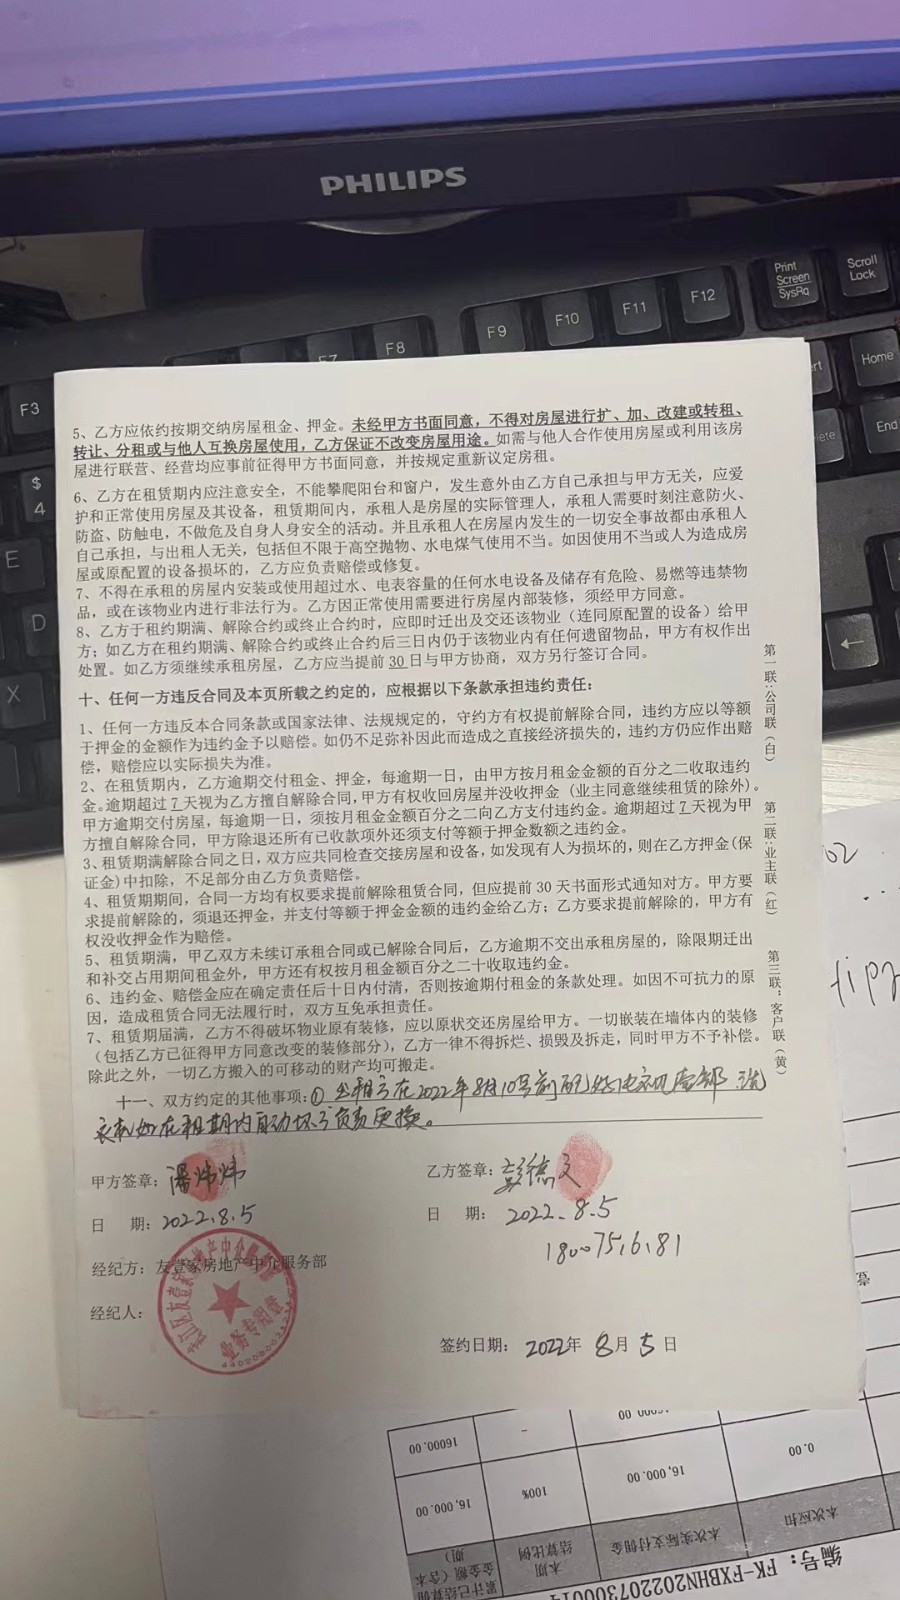 PHILIPS
Print Screen SysRq
Scroll Lock
F3
F7
F8
F9
F10
F11
F12
Home
End
$ 4
E
D
X
5、乙方应依约按期交纳房屋租金、押金。未经甲方书面同意，不得对房屋进行扩、加、改建或转租、
转让、分租或与他人互换房屋使用，乙方保证不改变房屋用途。如需与他人合作使用房屋或利用该房
屋进行联营、经营均应事前征得甲方书面同意，并按规定重新议定房租。
6、乙方在租赁期内应注意安全，不能攀爬阳台和窗户，发生意外由乙方自己承担与甲方无关，应爱
护和正常使用房屋及其设备，租赁期间内，承租人是房屋的实际管理人，承租人需要时刻注意防火、
防盗、防触电，不做危及自身人身安全的活动。并且承租人在房屋内发生的一切安全事故都由承租人
自己承担，与出租人无关，包括但不限于高空抛物、水电煤气使用不当。如因使用不当或人为造成房
屋或原配置的设备损坏的，乙方应负责赔偿或修复。
7、不得在承租的房屋内安装或使用超过水、电表容量的任何水电设备及储存有危险、易燃等违禁物
品，或在该物业内进行非法行为。乙方因正常使用需要进行房屋内部装修，须经甲方同意。
8、乙方于租约期满、解除合约或终止合约时，应即时迁出及交还该物业（连同原配置的设备）给甲
方；如乙方在租约期满、解除合约或终止合约后三日内仍于该物业内有任何遗留物品，甲方有权作出
处置。如乙方须继续承租房屋，乙方应当提前 30 日与甲方协商，双方另行签订合同。
十、任何一方违反合同及本页所载之约定的，应根据以下条款承担违约责任：
1、任何一方违反本合同条款或国家法律、法规规定的，守约方有权提前解除合同，违约方应以等额
于押金的金额作为违约金予以赔偿。如仍不足弥补因此而造成之直接经济损失的，违约方仍应作出赔
偿，赔偿应以实际损失为准。
2、在租赁期内，乙方逾期交付租金、押金，每逾期一日，由甲方按月租金金额的百分之二收取违约
金。逾期超过 7 天视为乙方擅自解除合同，甲方有权收回房屋并没收押金（业主同意继续租赁的除外）。
甲方逾期交付房屋，每逾期一日，须按月租金金额百分之二向乙方支付违约金。逾期超过 7 天视为甲
方擅自解除合同，甲方除退还所有已收款项外还须支付等额于押金数额之违约金。
3、租赁期满解除合同之日，双方应共同检查交接房屋和设备，如发现有人为损坏的，则在乙方押金（保
证金）中扣除，不足部分由乙方负责赔偿。
4、租赁期期间，合同一方均有权要求提前解除租赁合同，但应提前 30 天书面形式通知对方。甲方要
求提前解除的，须退还押金，并支付等额于押金金额的违约金给乙方；乙方要求提前解除的，甲方有
权没收押金作为赔偿。
5、租赁期满，甲乙双方未续订承租合同或已解除合同后，乙方逾期不交出承租房屋的，除限期迁出
和补交占用期间租金外，甲方还有权按月租金额百分之二十收取违约金。
6、违约金、赔偿金应在确定责任后十日内付清，否则按逾期付租金的条款处理。如因不可抗力的原
因，造成租赁合同无法履行时，双方互免承担责任。
7、租赁期届满，乙方不得破坏物业原有装修，应以原状交还房屋给甲方。一切嵌装在墙体内的装修
（包括乙方已征得甲方同意改变的装修部分），乙方一律不得拆烂、损毁及拆走，同时甲方不予补偿。
除此之外，一切乙方搬入的可移动的财产均可搬走。
十一、双方约定的其他事项：① 出租方在2022年8月10号前配好 洗
衣机如在租期内自动坏 负责更换。
甲方签章：潘炜炜
乙方签章：彭德文
日 期：2022.8.5
日 期：2022.8.5
经纪方：友壹家房地产中介服务部
经纪人：
签约日期：2022年 8月 5日
业务专用章
第一联：公司联（白）
第二联：业主联（红）
第三联：客户联（黄）
编号：FK-FXBHN20220730001
本次应扣
本次实际支付佣金
本期结算比例
累计已结算佣金金额（含本期）
0.00
16,000.00
100%
16,000.00
-
16000.00